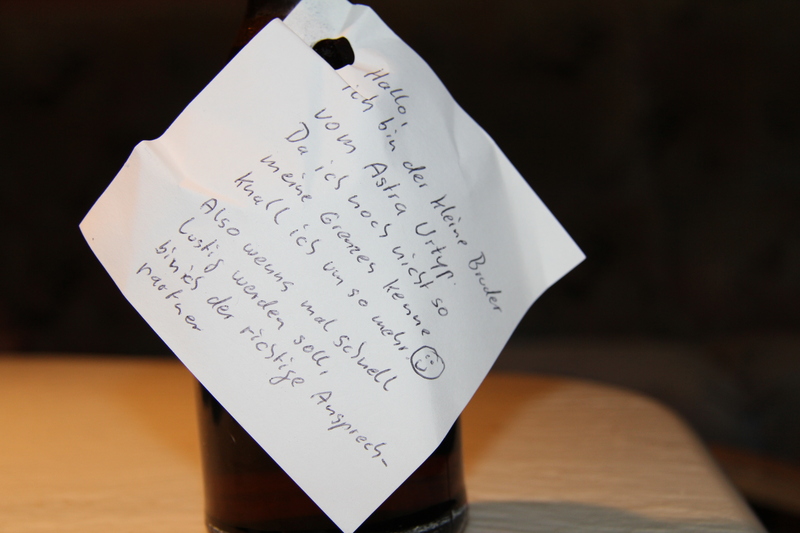 Hallo,
ich bin der kleine Bruder
vom Astra Urtyp.
Da ich noch nicht so
meine Grenzen kenne
knall ich um so mehr! ☺
Also wenns mal schnell
lustig werden soll,
bin ich der richtige Ansprech-
partner